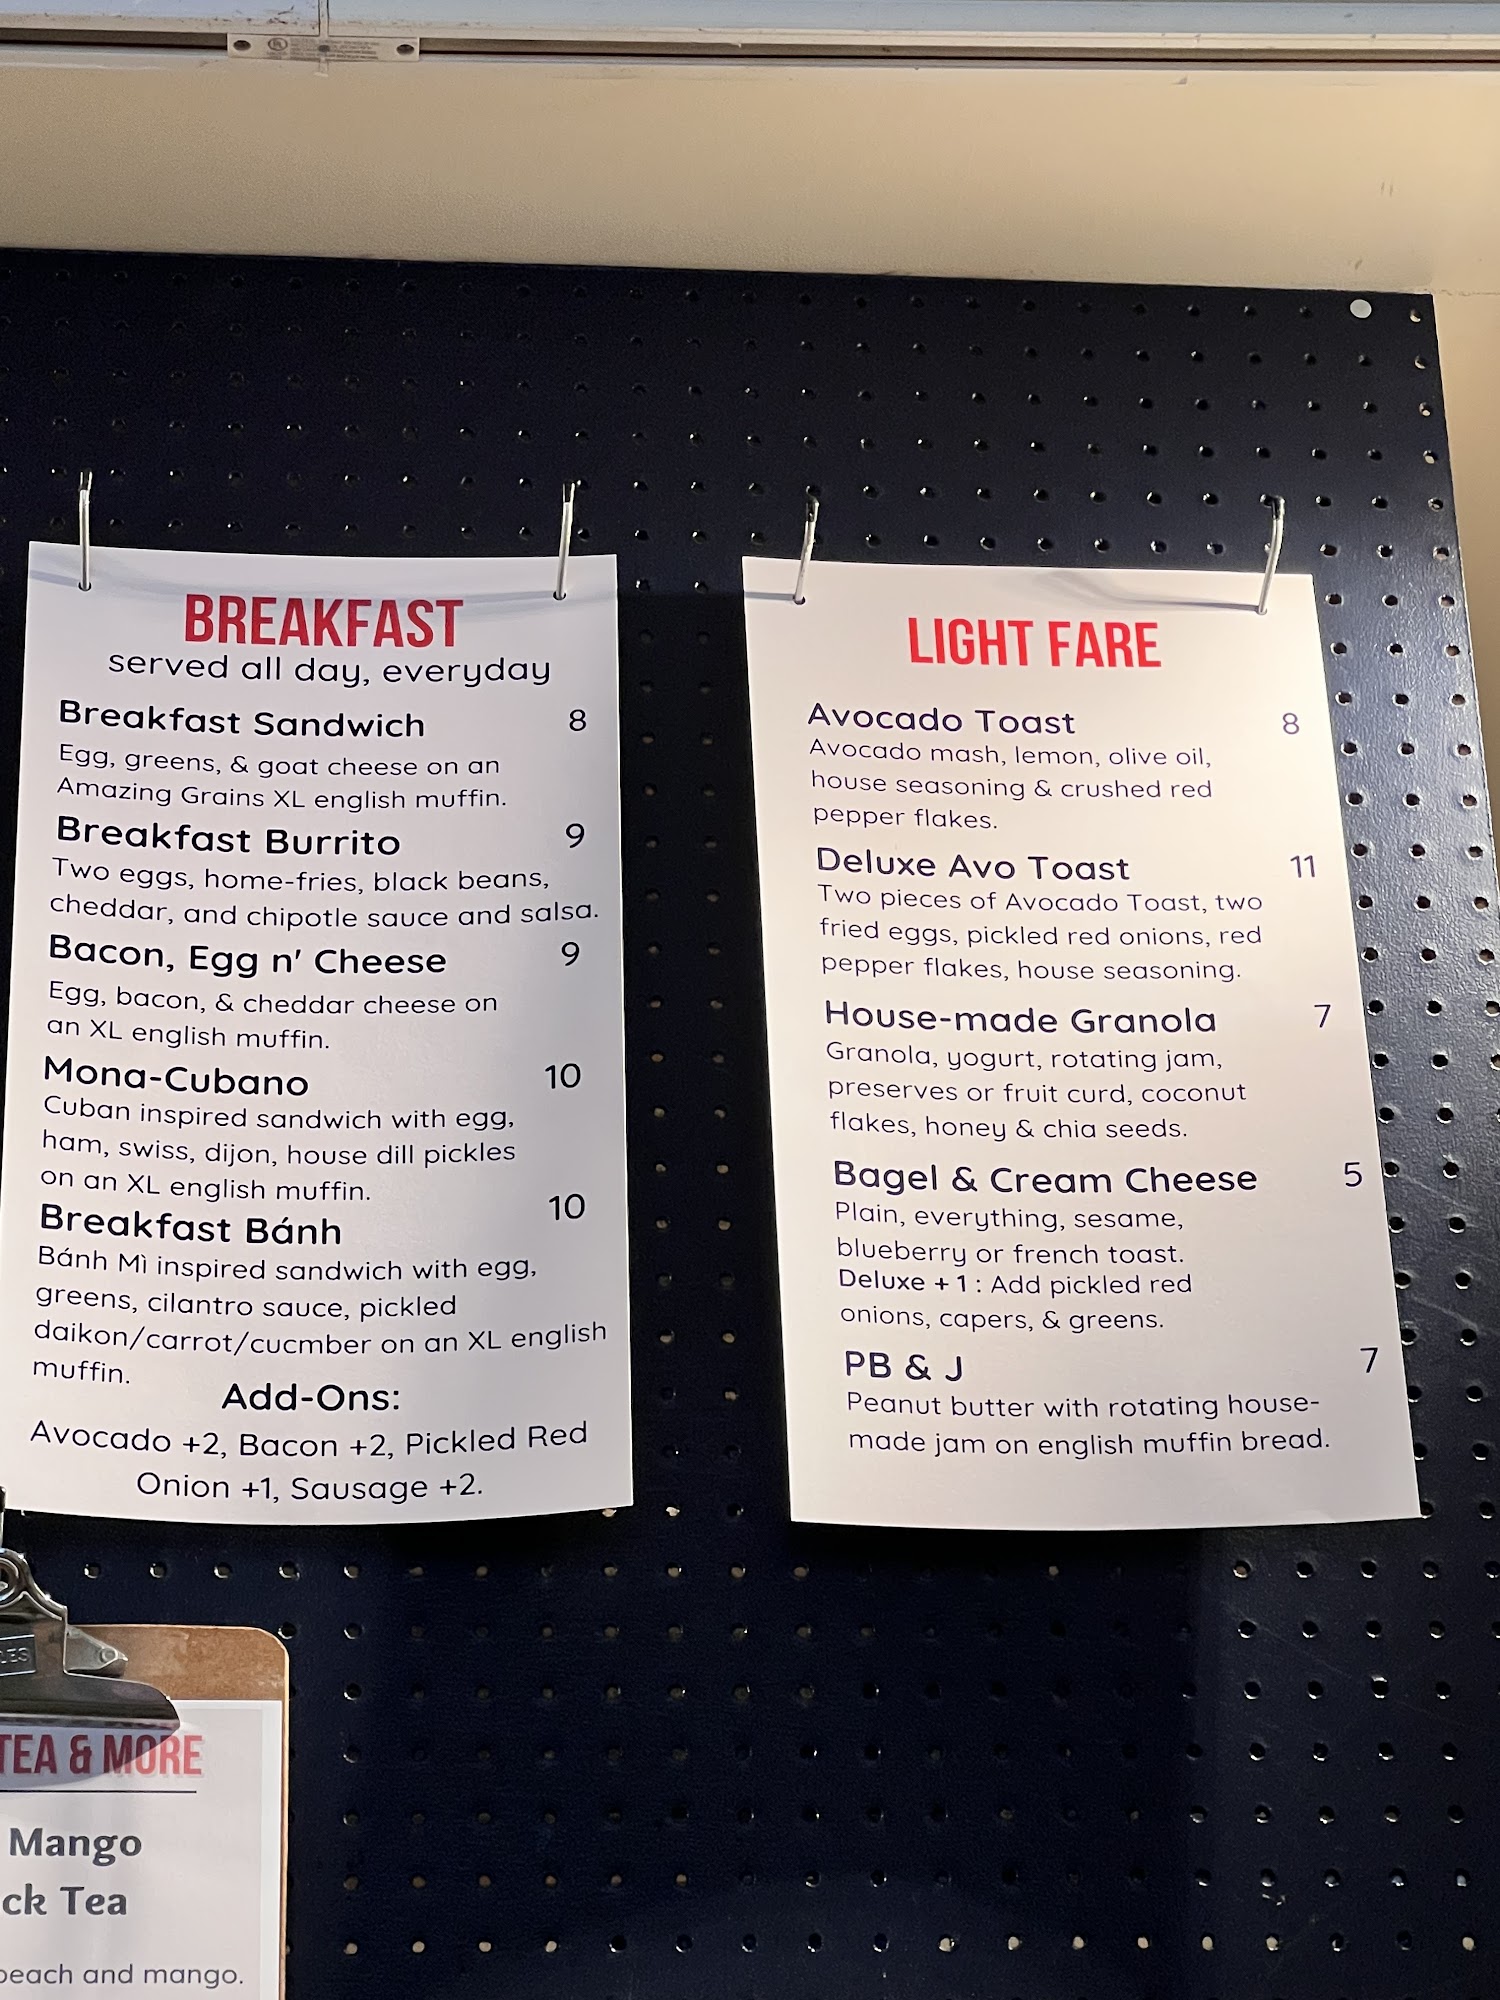 BREAKFAST
served all day, everyday
Breakfast Sandwich 8
Egg, greens, & goat cheese on an
Amazing Grains XL english muffin.
Breakfast Burrito 9
Two eggs, home-fries, black beans,
cheddar, and chipotle sauce and salsa.
Bacon, Egg n' Cheese 9
Egg, bacon, & cheddar cheese on
an XL english muffin.
Mona-Cubano 10
Cuban inspired sandwich with egg,
ham, swiss, dijon, house dill pickles
on an XL english muffin.
Breakfast Bánh 10
Bánh Mì inspired sandwich with egg,
greens, cilantro sauce, pickled
daikon/carrot/cucmber on an XL english
muffin.
Add-Ons:
Avocado +2, Bacon +2, Pickled Red
Onion +1, Sausage +2.
LIGHT FARE
Avocado Toast 8
Avocado mash, lemon, olive oil,
house seasoning & crushed red
pepper flakes.
Deluxe Avo Toast 11
Two pieces of Avocado Toast, two
fried eggs, pickled red onions, red
pepper flakes, house seasoning.
House-made Granola 7
Granola, yogurt, rotating jam,
preserves or fruit curd, coconut
flakes, honey & chia seeds.
Bagel & Cream Cheese 5
Plain, everything, sesame,
blueberry or french toast.
Deluxe + 1 : Add pickled red
onions, capers, & greens.
PB & J 7
Peanut butter with rotating house-
made jam on english muffin bread.
TEA & MORE
Mango
ck Tea
peach and mango.